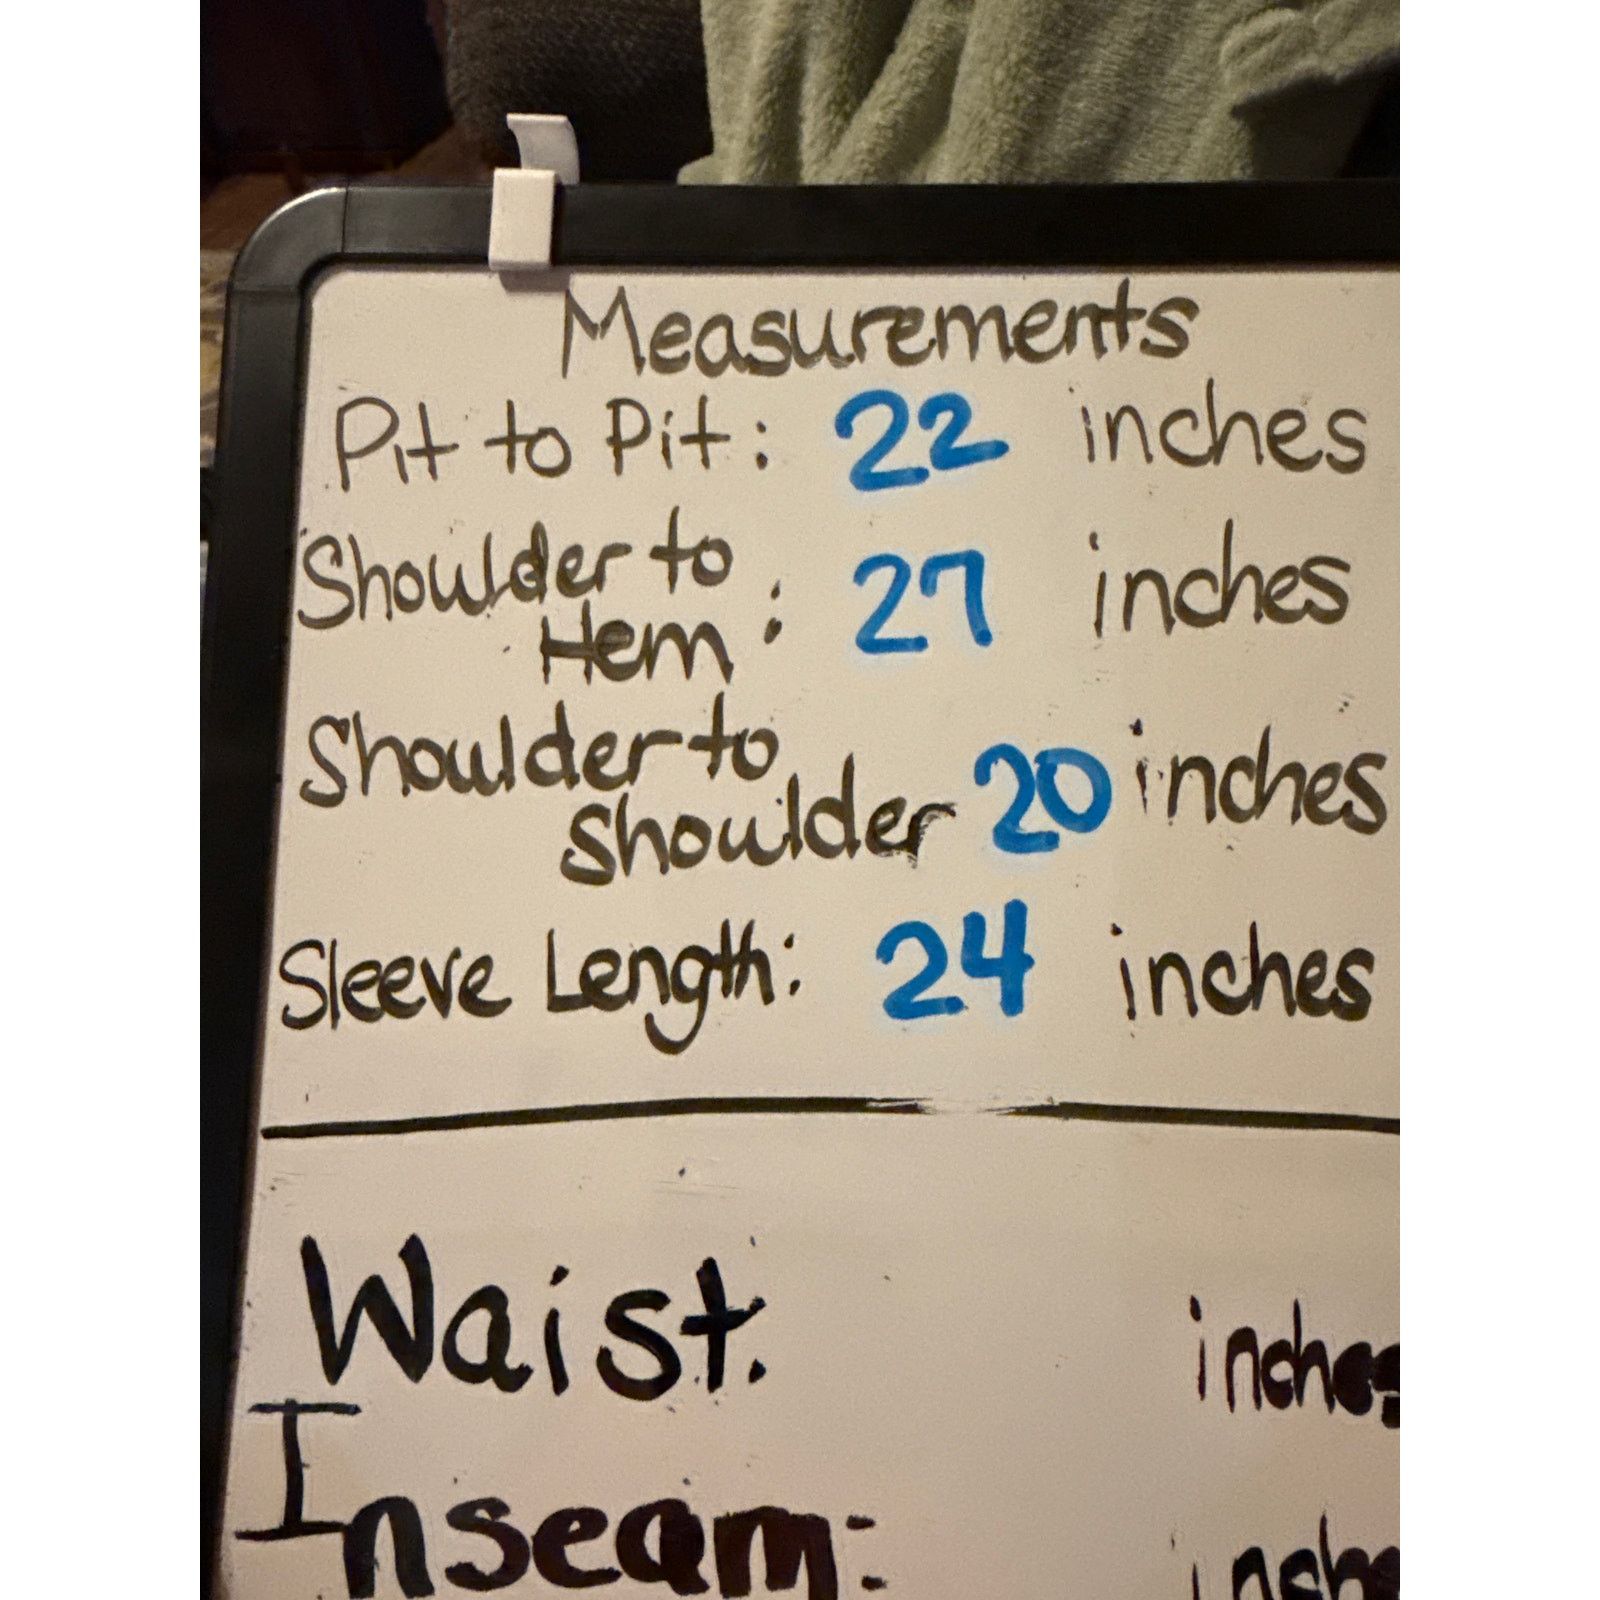 Measurements
Pit to Pit: 22 inches
Shoulder to
Hem: 27 inches
Shoulder to
Shoulder 20 inches
Sleeve Length: 24 inches
Waist. inches
Inseam: inches